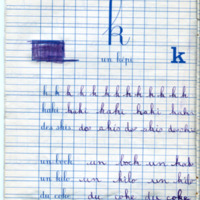 k
un képi
k
k k k k k k k k k k k k
kaki kaki kaki kaki kaki
des skis des skis des skis des
un bock un bock un
un kilo un kilo un kilo
du coke du coke du coke